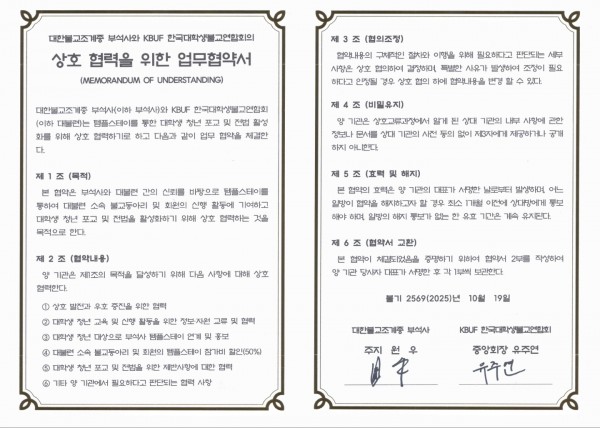 대한불교조계종 부석사와 KBUF 한국대학생불교연합회의
상호 협력을 위한 업무협약서
(MEMORANDUM OF UNDERSTANDING)
대한불교조계종 부석사(이하 부석사)와 KBUF 한국대학생불교연합회
(이하 대불련)는 템플스테이를 통한 대학생 청년 포교 및 전법 활성
화를 위해 상호 협력하기로 하고 다음과 같이 업무 협약을 체결한
다.
제 1 조 (목적)
본 협약은 부석사와 대불련 간의 신뢰를 바탕으로 템플스테이를
통하여 대불련 소속 불교동아리 및 회원의 신행 활동에 기여하고
대학생 청년 포교 및 전법을 활성화하기 위해 상호 협력하는 것을
목적으로 한다.
제 2 조 (협약내용)
양 기관은 제1조의 목적을 달성하기 위해 다음 사항에 대해 상호
협력한다.
① 상호 발전과 우호 증진을 위한 협력
② 대학생 청년 교육 및 신행 활동을 위한 정보·자원 교류 및 협력
③ 대학생 청년 대상으로 부석사 템플스테이 연계 및 홍보
④ 대불련 소속 불교동아리 및 회원의 템플스테이 참가비 할인(50%)
⑤ 대학생 청년 포교 및 전법을 위한 제반사항에 대한 협력
⑥ 기타 양 기관에서 필요하다고 판단되는 협력 사항
제 3 조 (협의조정)
협약내용의 구체적인 절차와 이행을 위해 필요하다고 판단되는 세부
사항은 상호 협의하여 결정하며, 특별한 사유가 발생하여 조정이 필요
하다고 인정될 경우 상호 협의 하에 협약내용을 변경 할 수 있다.
제 4 조 (비밀유지)
양 기관은 상호교류과정에서 알게 된 상대 기관의 내부 사항에 관한
정보나 문서를 상대 기관의 사전 동의 없이 제3자에게 제공하거나 공개
하지 아니한다.
제 5 조 (효력 및 해지)
본 협약의 효력은 양 기관의 대표가 서명한 날로부터 발생하며, 어느
일방이 협약을 해지하고자 할 경우 최소 1개월 이전에 상대방에게 통보
해야 하며, 일방의 해지 통보가 없는 한 유효 기간은 계속 유지된다.
제 6 조 (협약서 교환)
본 협약이 체결되었음을 증명하기 위하여 협약서 2부를 작성하여
양 기관 당사자 대표가 서명한 후 각 1부씩 보관한다.
불기 2569(2025)년 10월 19일
대한불교조계종 부석사
주지 원 우
KBUF 한국대학생불교연합회
중앙회장 유주연
유주연